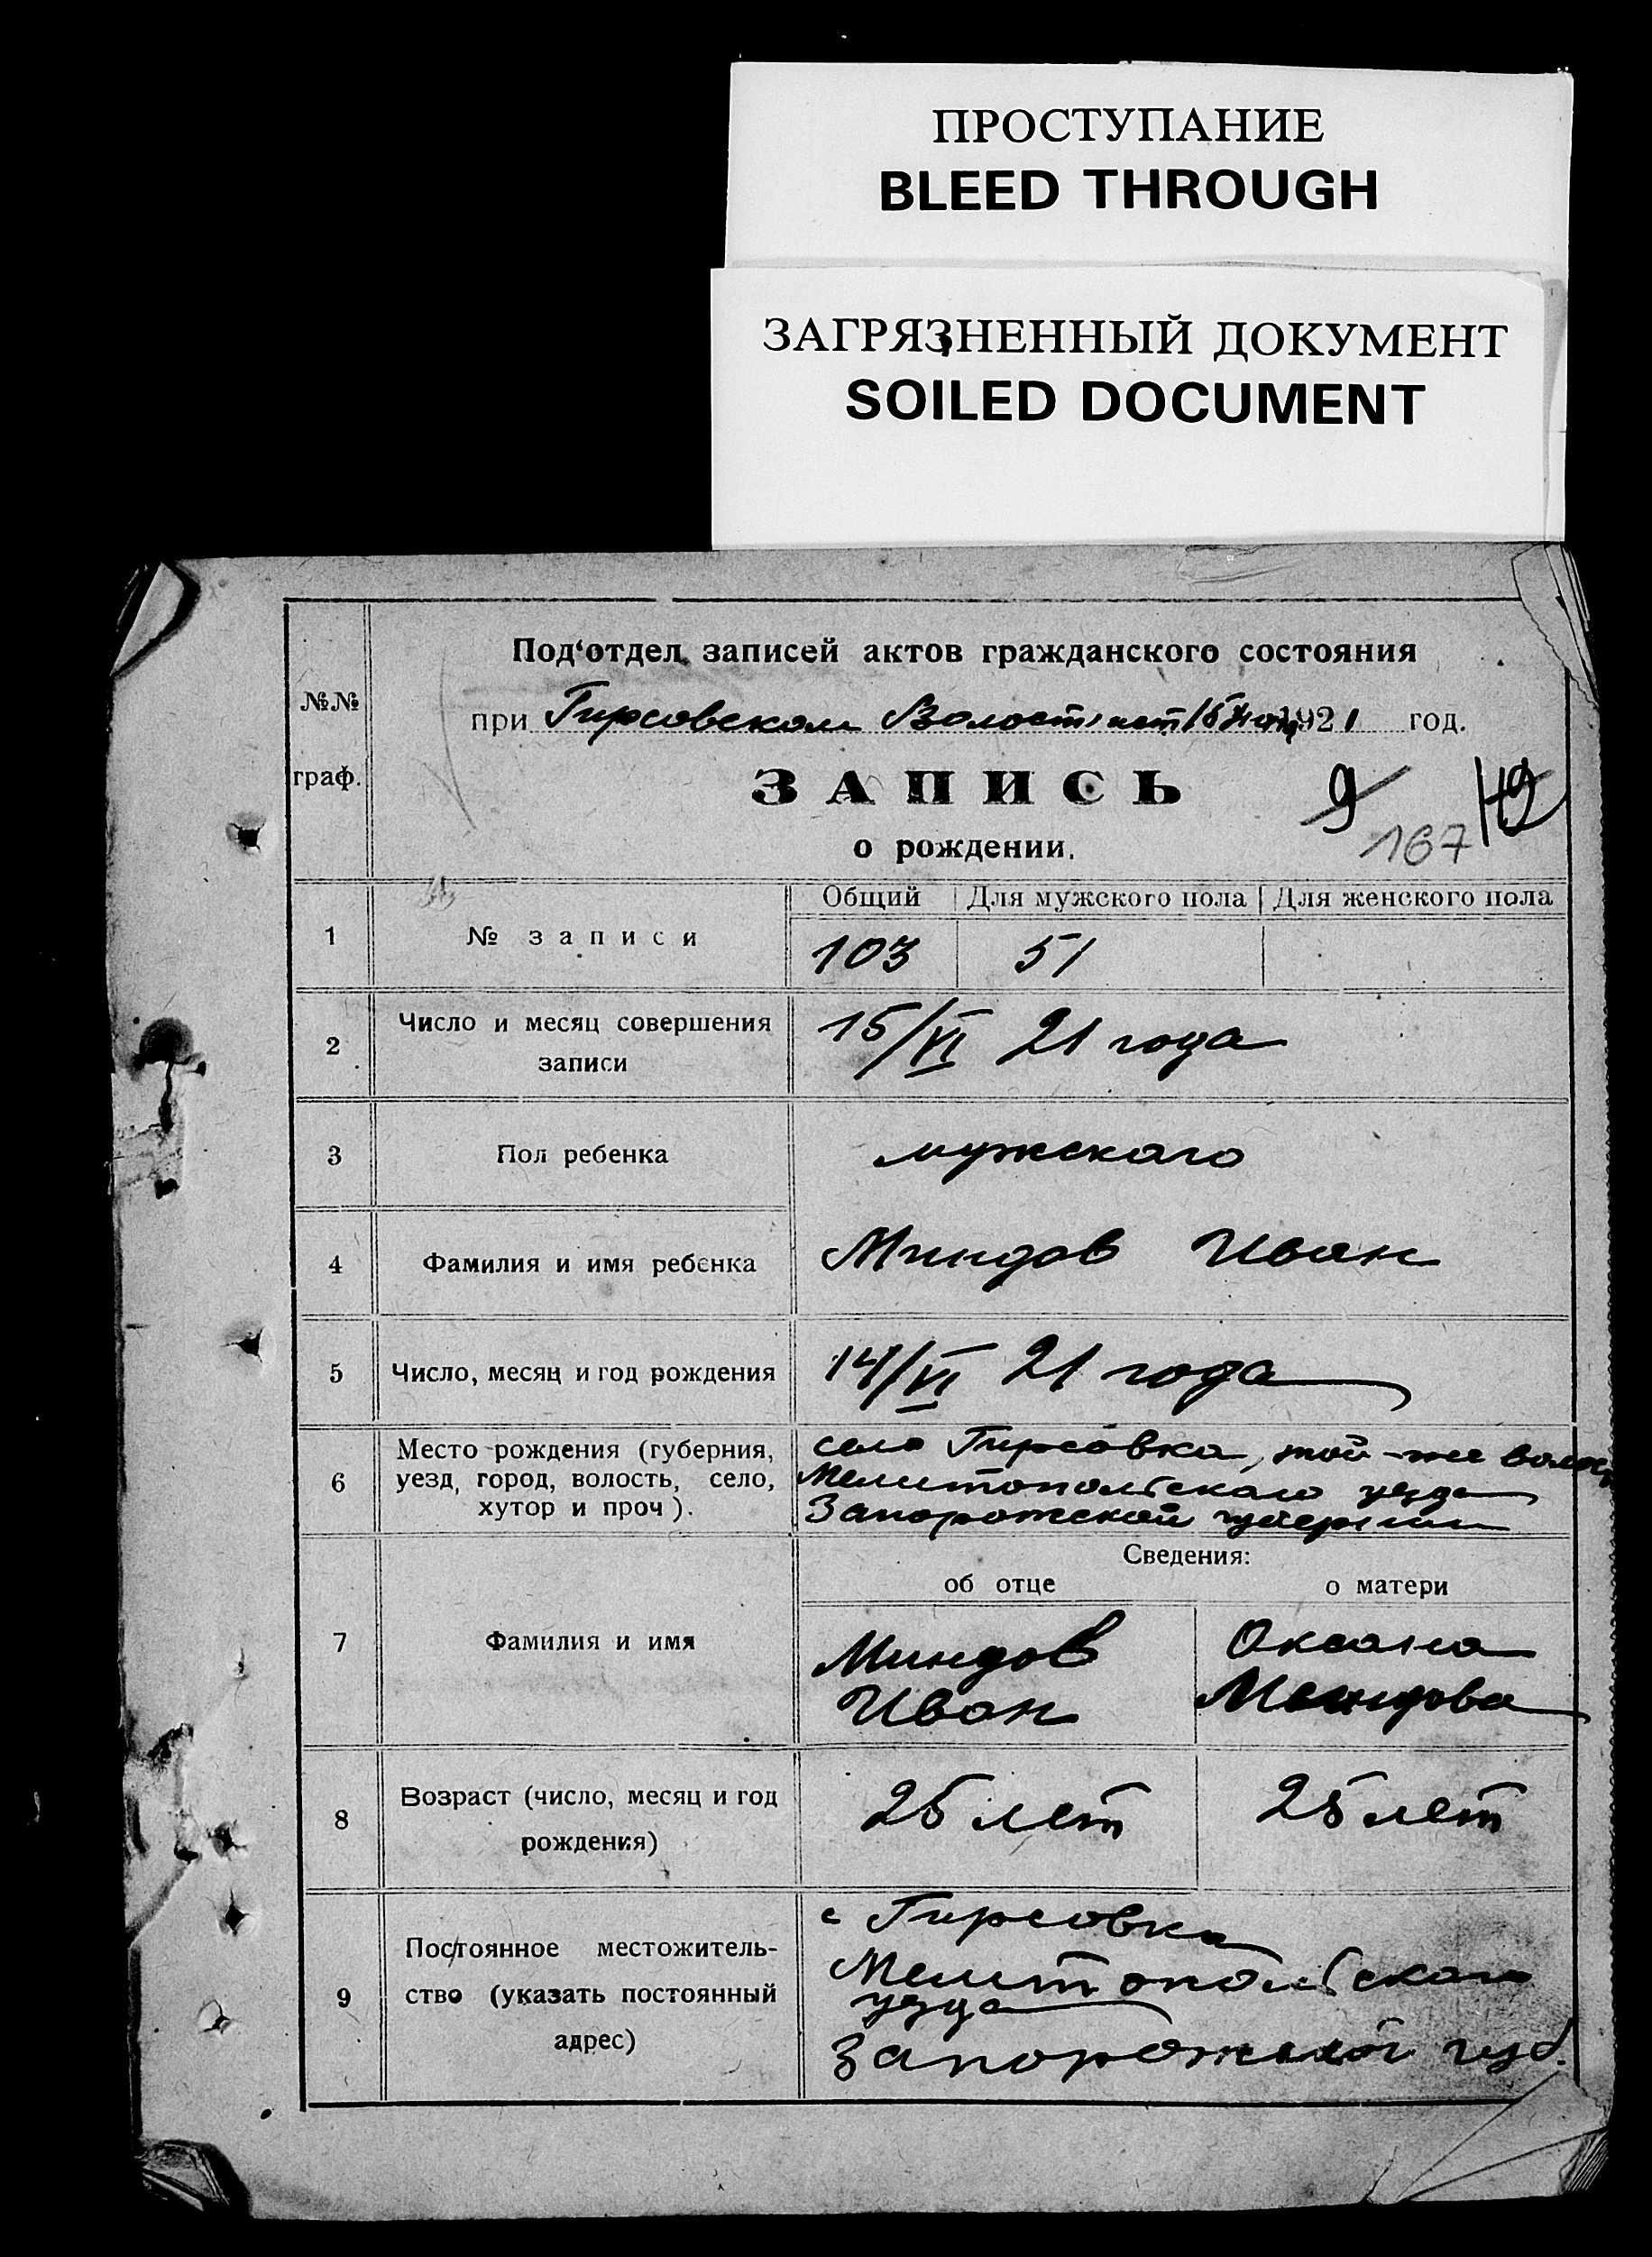 ПРОСТУПАНИЕ
BLEED THROUGH
ЗАГРЯЗНЕННЫЙ ДОКУМЕНТ
SOILED DOCUMENT
Под‘отдел записей актов гражданского состояния
№№
граф.
при Гирсовском Волост 15 1921 год.
ЗАПИСЬ
9 112
167
о рождении.
Общий Для мужского пола Для женского пола
1 № записи 103 51
2 Число и месяц совершения
записи
15/VI 21 года
3 Пол ребенка мужскаго
4 Фамилия и имя ребенка Миндов Иван
5 Число, месяц и год рождения 14/VI 21 года
6 Место рождения (губерния,
уезд, город, волость, село,
хутор и проч).
село Гирсовка, той-же волос
Мелитопольскаго уезда
Запорожской губернии
Сведения:
об отце о матери
7 Фамилия и имя
Миндов
Иван
Оксана
Миндова
8 Возраст (число, месяц и год
рождения)
25 лет 25 лет
9 Постоянное местожитель-
ство (указать постоянный
адрес)
с Гирсовка
Мелитопольскаго
уезда
Запорожской губ.